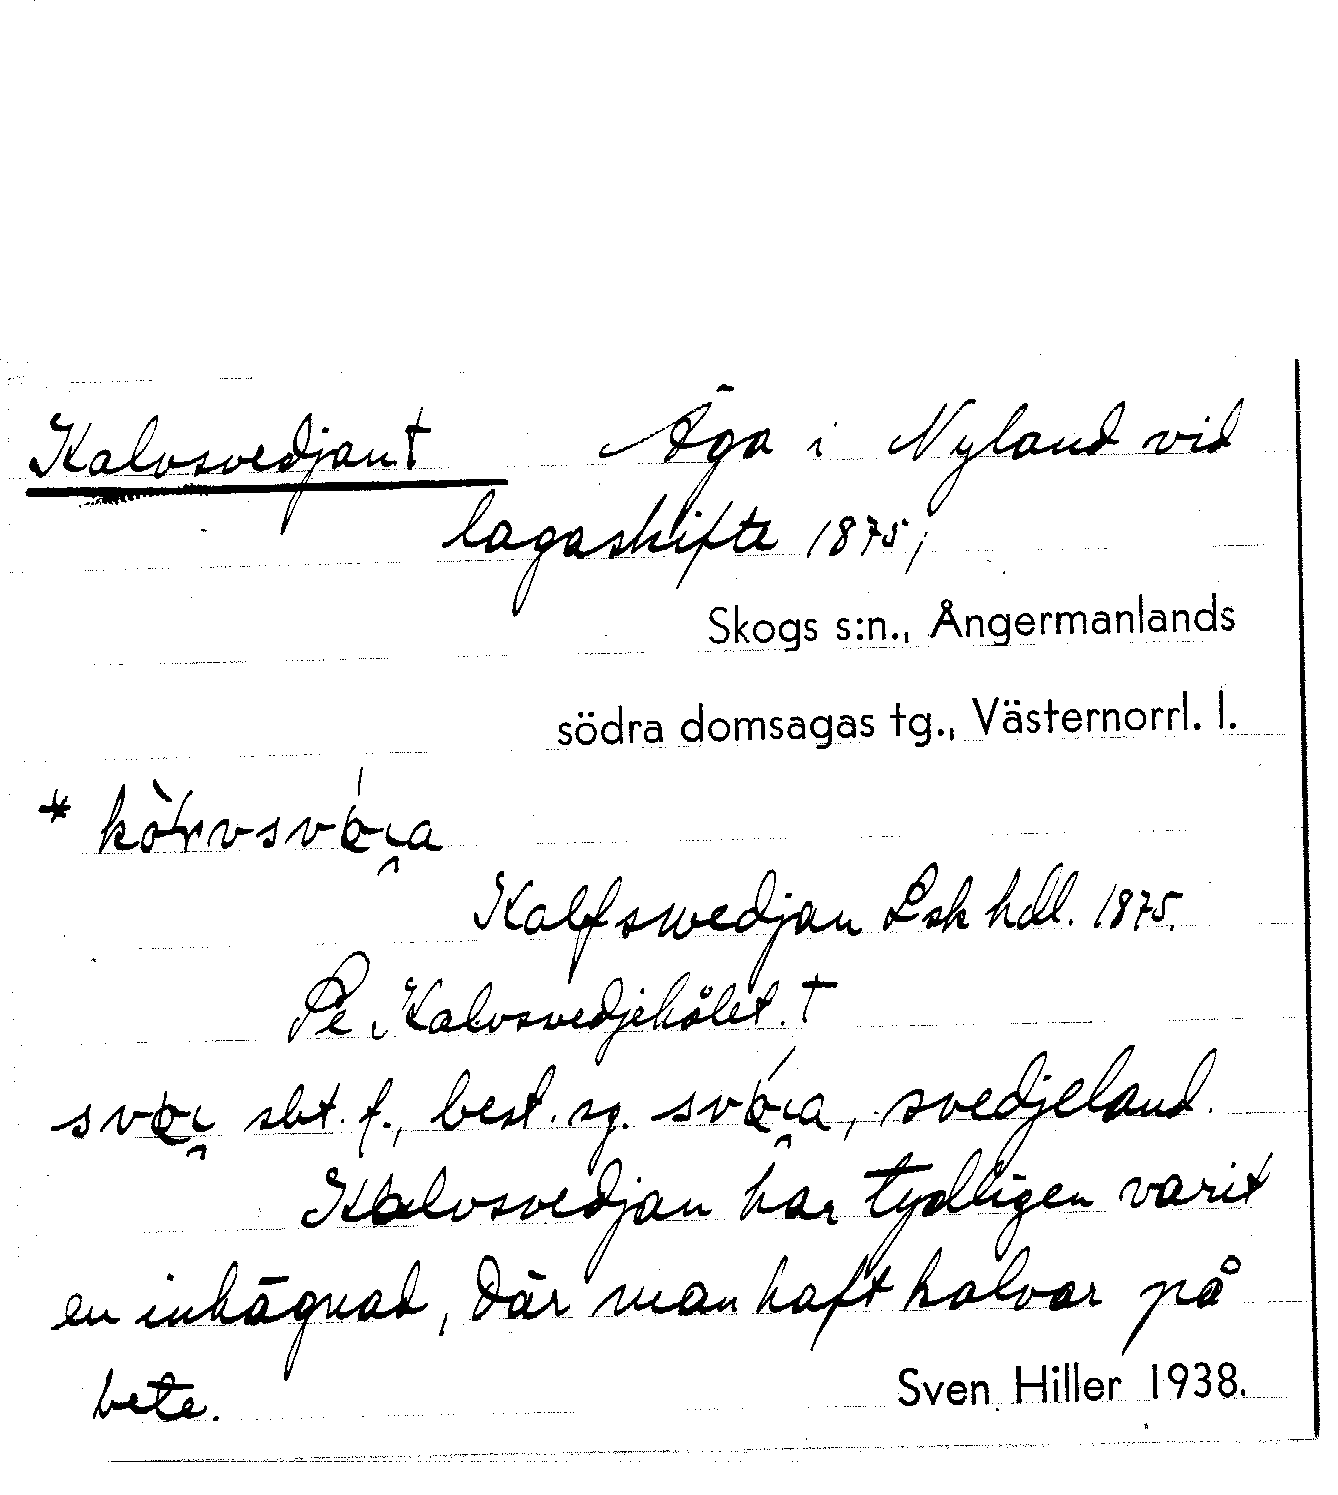 Kalvsvedjan† Äga i Nyland vid
lagaskifte 1875,
Skogs s:n., Ångermanlands
södra domsagas tg., Västernorrl. l.
*
Kalfswedjan Lsk hdl. 1875.
Pe Kalvsvedjehålet.†
sbt. f., best. sg. , svedjeland.
Kalvsvedjan har tydligen varit
en inhägnad, där man haft kalvar på
bete. Sven Hiller 1938.